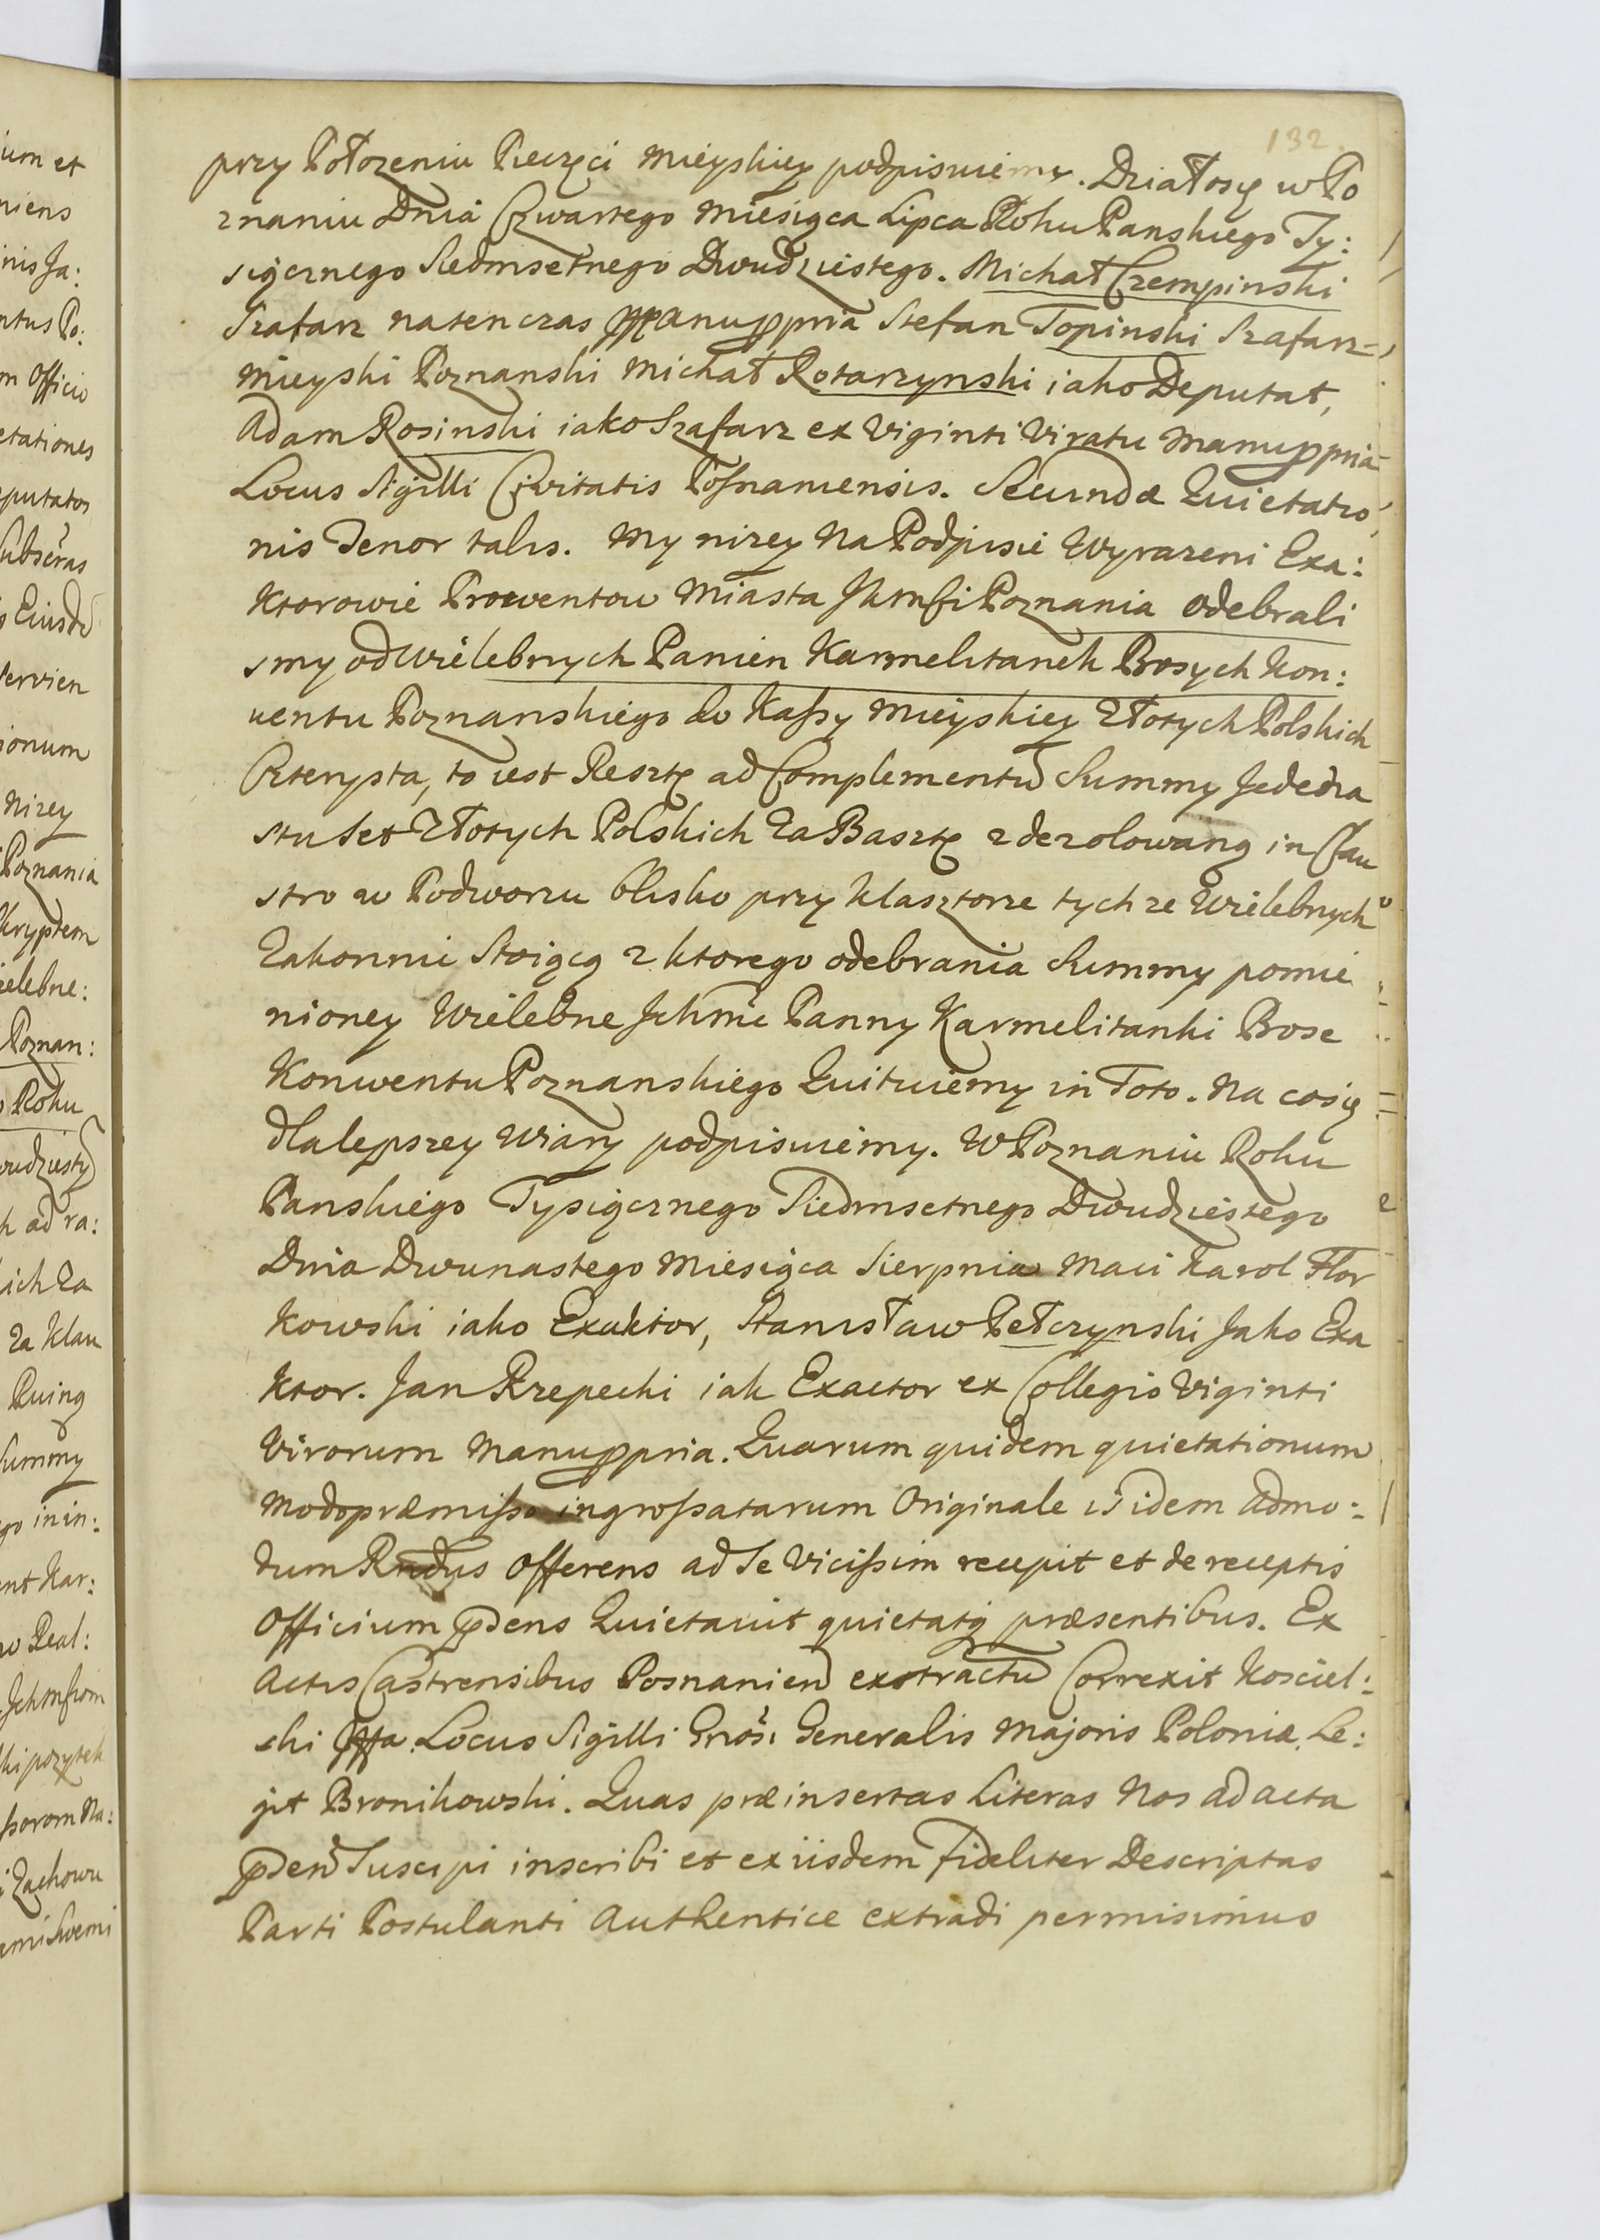 132.
przy Połozeniu Pieczęci Mieyskiey podpisuiemy. Działosię w Po
znaniu Dnia Czwartego Miesiąca Lipca Roku Panskiego Ty:
siącznego Siedmsetnego Dwudziestego. Michał Czempinski
Szafarz natenczas manuppria Stefan Topinski Szafarz
Mieyski Poznanski Michał Rotarzynski iako Deputat,
Adam Rosinski iako Szafarz ex Viginti Viratu Manuppria
Locus Sigilli Civitatis Posnaniensis. Secundæ Quietatio
nis Tenor talis. My nizey Na Podpisie Wyrazeni Exa:
ktorowie Prowentow Miasta JKMsci Poznania odebrali
smy od Wielebnych Panien Karmelitanek Bosych Kon:
uentu Poznanskiego do Kassy Mieyskiey Złotych Polskich
Czterysta, to iest Resztę ad Complementū Summy Jedena
stu Set Złotych Polskich Za Basztę zdezolowaną in Clau
stro w Podworzu blisko przy klasztorze tychze Wielebnych
Zakonnic Stoiącą z ktorego odebrania Summy pomie
nioney Wielebne Jchmć Panny Karmelitanki Bose
Konwentu Poznanskiego Quituiemy in Toto. Na cosię
dla lepszey Wiary podpisuiemy. W Poznaniu Roku
Panskiego Tysiącznego Siedmsetnego Dwudziestego
Dnia Dwunastego Miesiąca Sierpnia Maci Karol Flor
kowski iako Exaktor, Stanisław Pełczynski Jako Exa
ktor. Jan Rzepecki iak Exactor ex Collegio Viginti
Virorum Manuppria. Quarum quidem quietationum
Modopræmisso ingrossatarum Originale idem admo:
dum Rndus Offerens ad Se Vicissim recepit et de receptis
Officium pdens Quietauit quietatq præsentibus. Ex
Actis Castrensibus Posnanien extractū Correxit Kosciel:
ski Locus Sigilli Generalis Majoris Poloniæ. Le:
git Bronikowski. Quas præinsertas Literas Nos ad acta
pden Suscipi inscribi et ex iisdem fideliter Descriptas
Parti Postulanti Authentice extradi permisimus